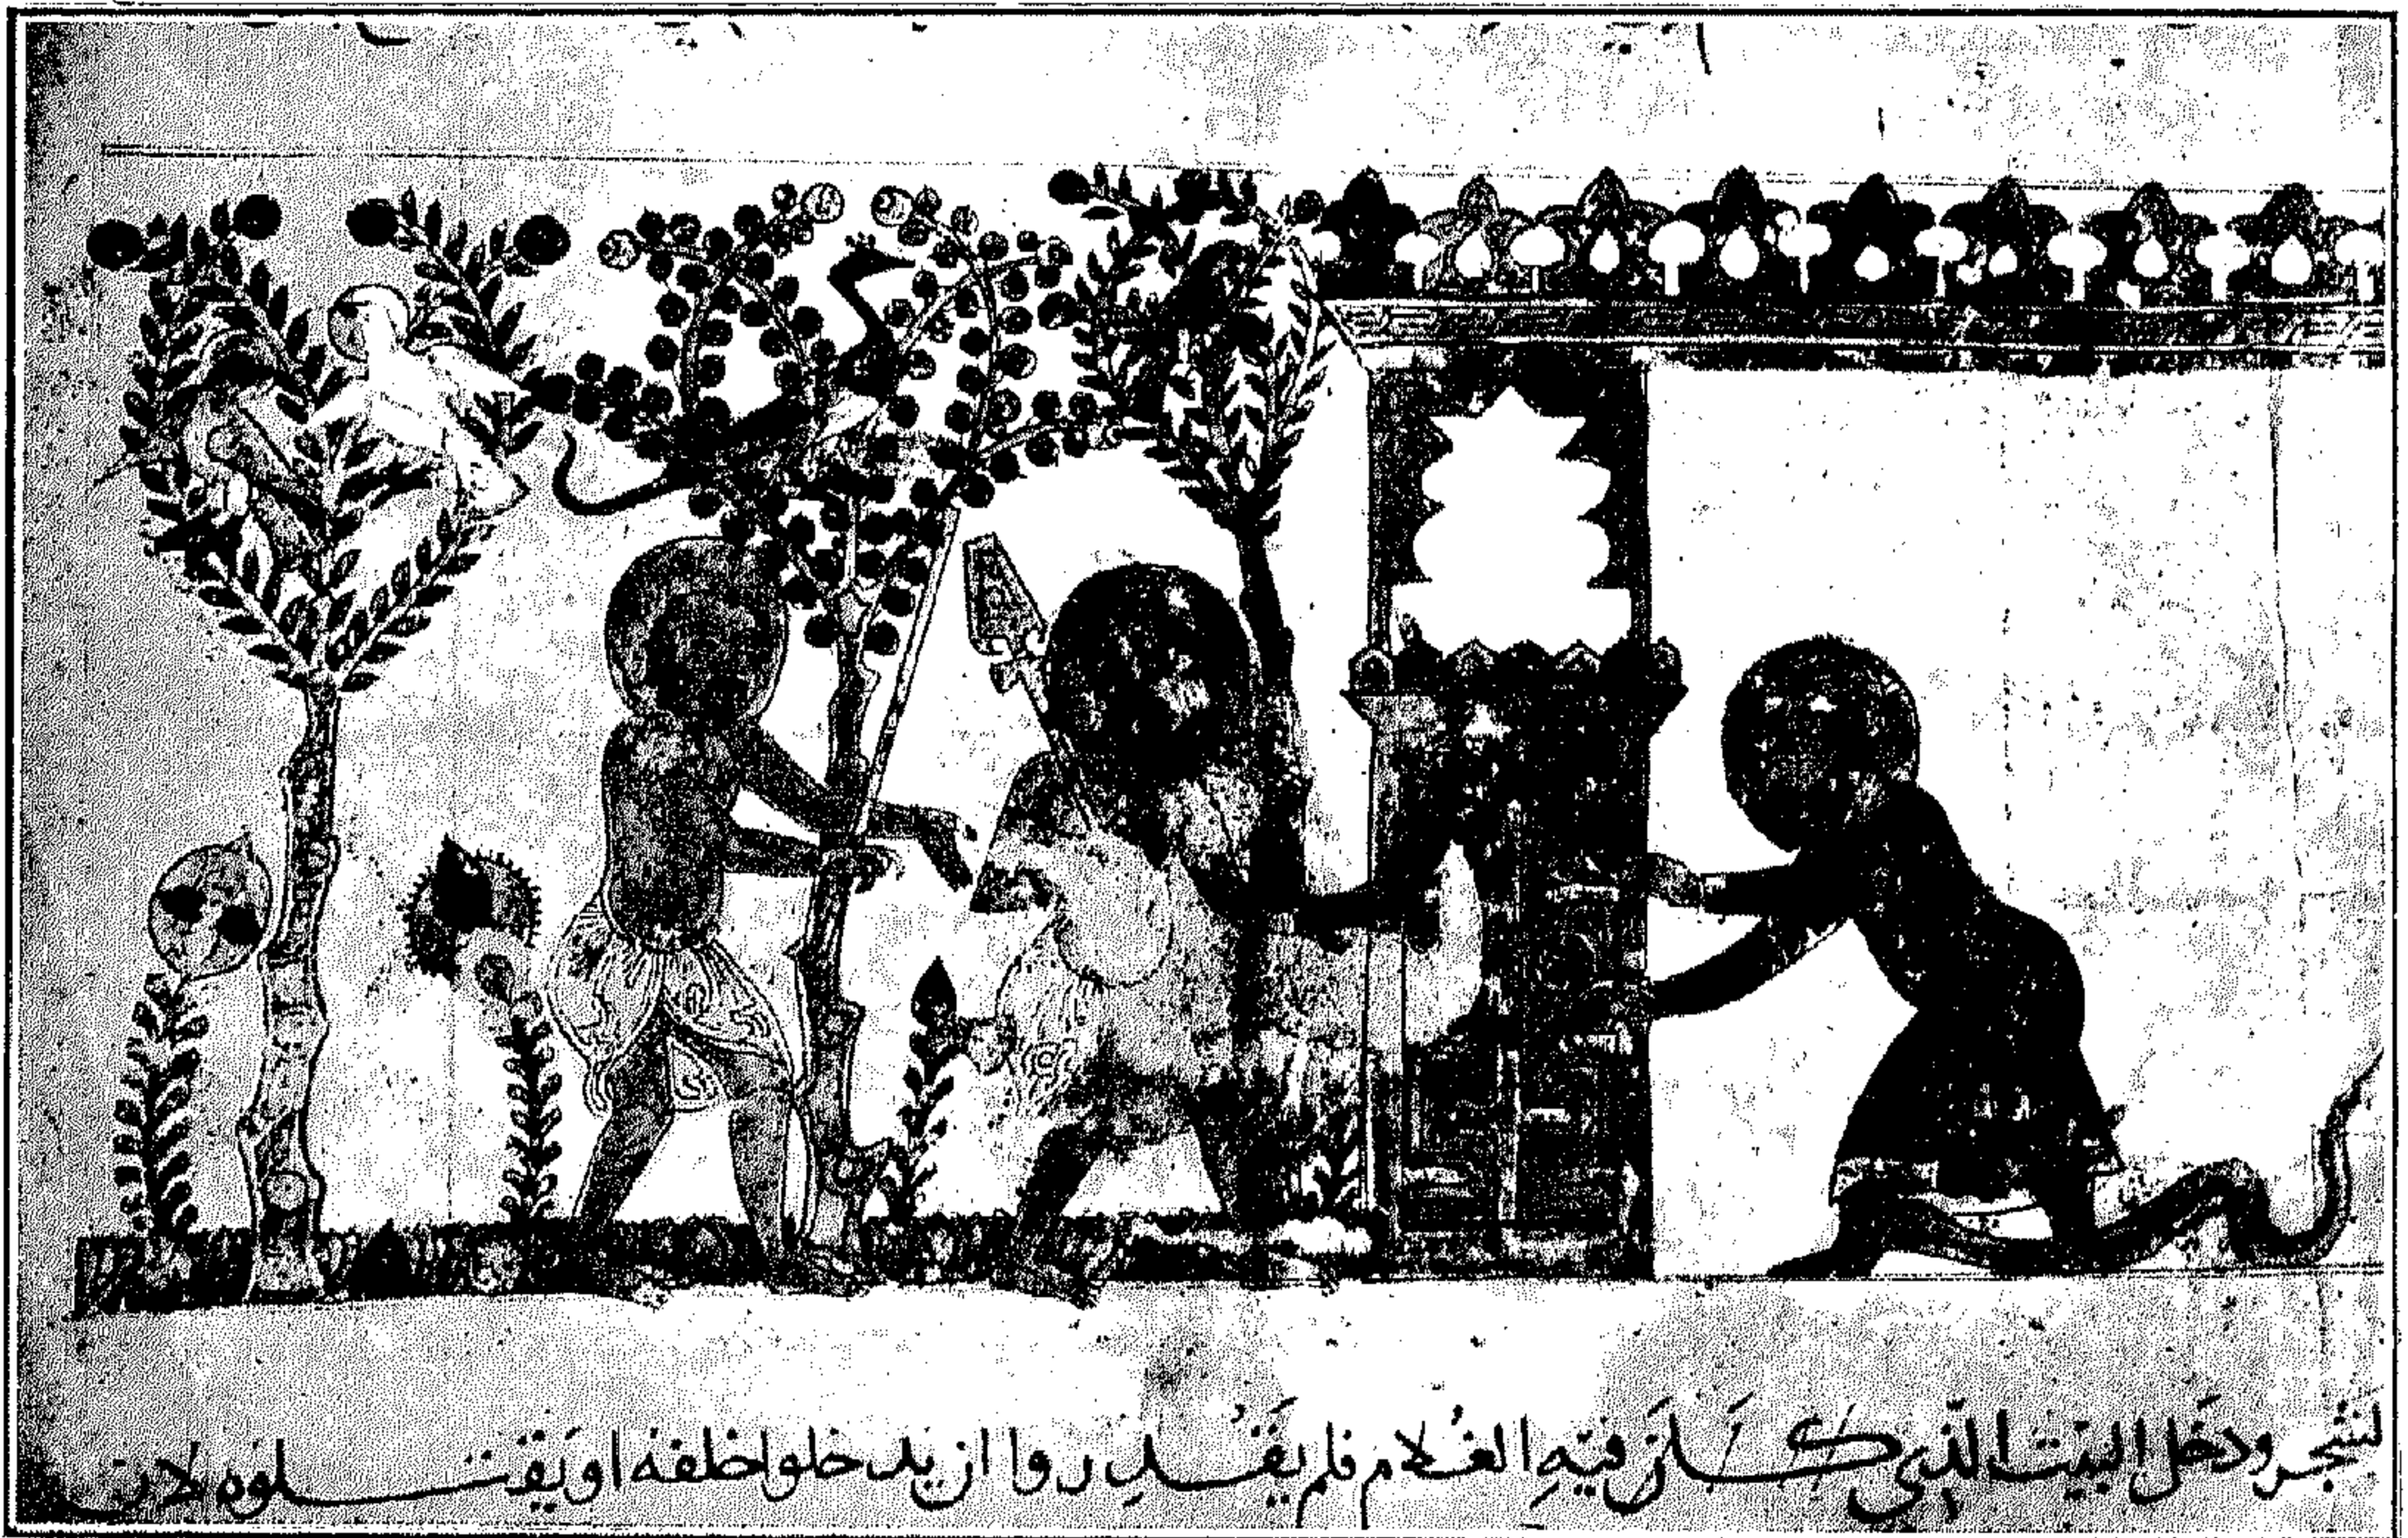 لشجر ودَخَل البَيْتَ الَّذِي كَانَ فيْهِ الغُلام فلم يَقْدِروا ان يدخلوا خلفه او يَقْتلوه لان